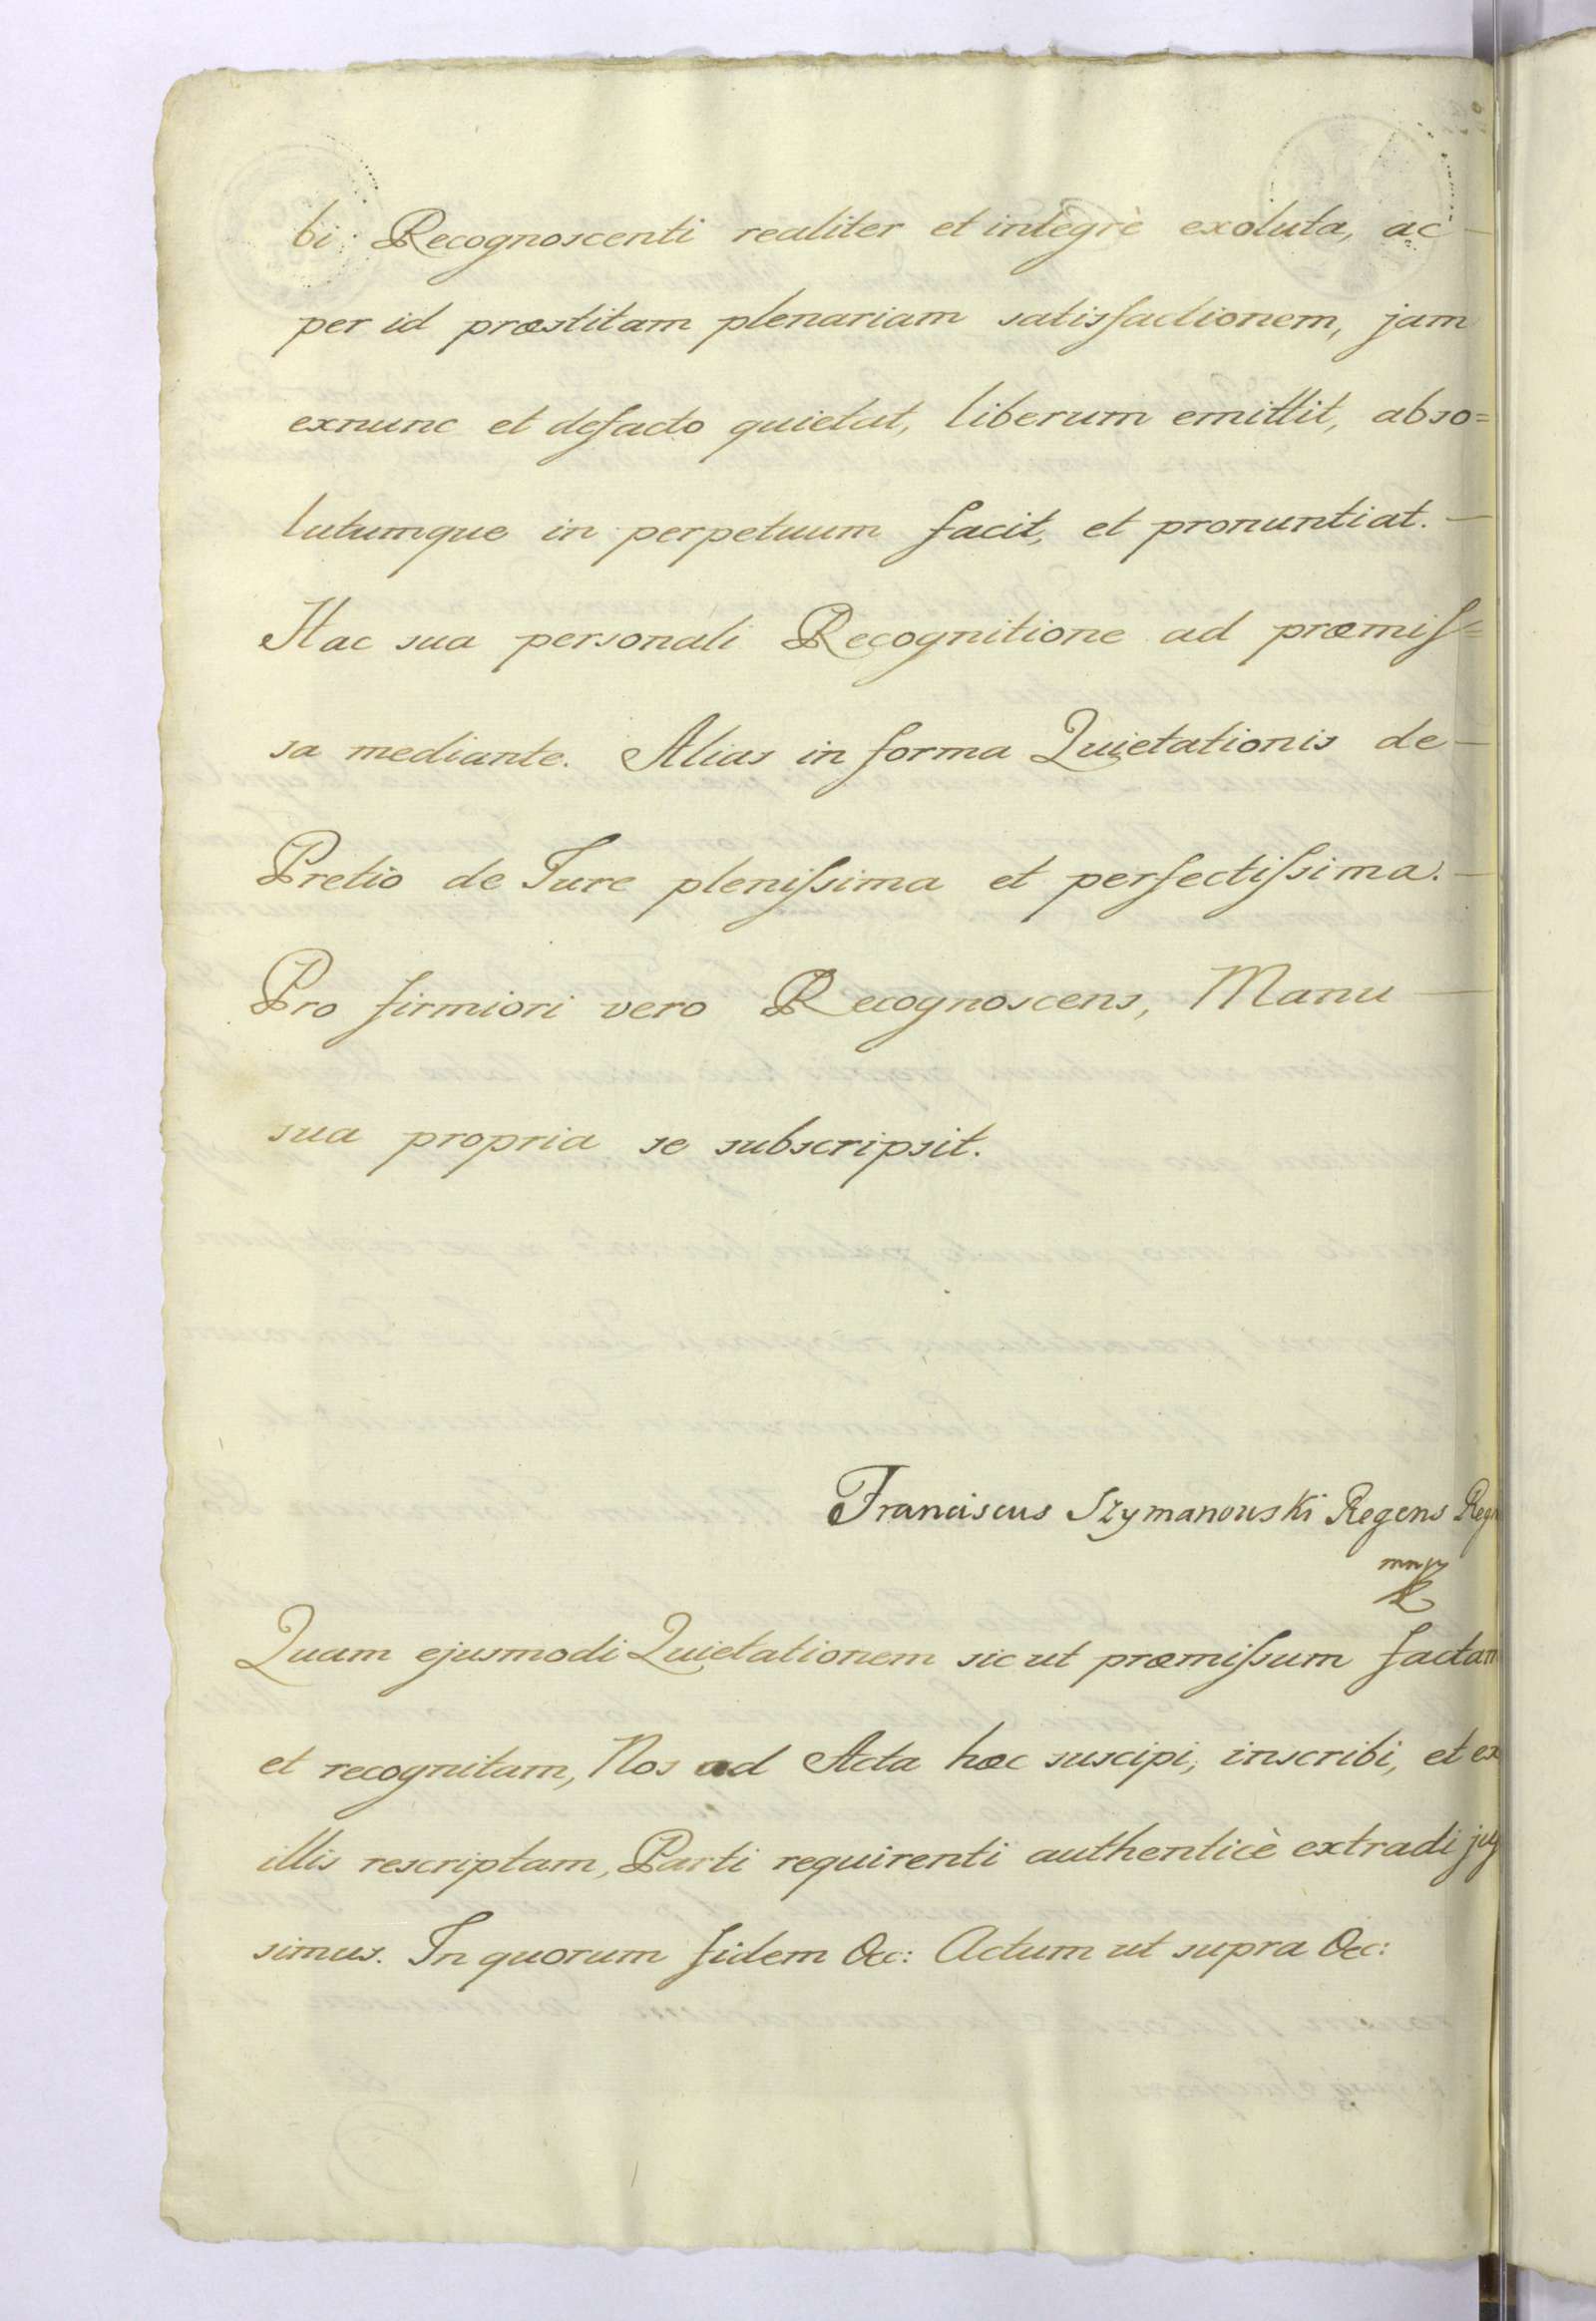 bi Recognoscenti realiter et integrè exoluta, ac —
per id præstitam plenariam satisfactionem, jam
exnunc et defacto quietat, liberum emittit, abso=
lutumque in perpetuum facit, et pronuntiat. —
Hac sua personali Recognitione ad præmiſ=
sa mediante. Alias in forma Quietationis de —
Pretio de Jure pleniſsima et perfectiſsima. —
Pro firmiori vero Recognoscens, Manu —
sua propria se subscripsit.
Franciscus Szymanowski Regens Regn
mp
Quam ejusmodi Quietationem sic ut præmiſsum factam
et recognitam, Nos ad Acta hæc suscipi, inscribi, et ex
illis rescriptam, Parti requirenti authenticè extradi juſ
simus. In quorum fidem &c: Actum ut supra &c: